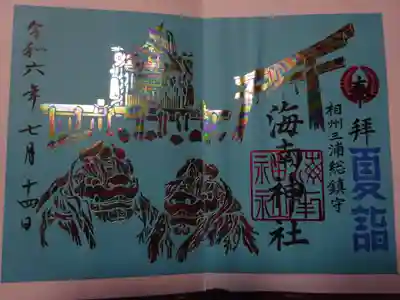 奉拝
夏詣
相州三浦総鎮守
海南神社
令和六年 七月 十四日